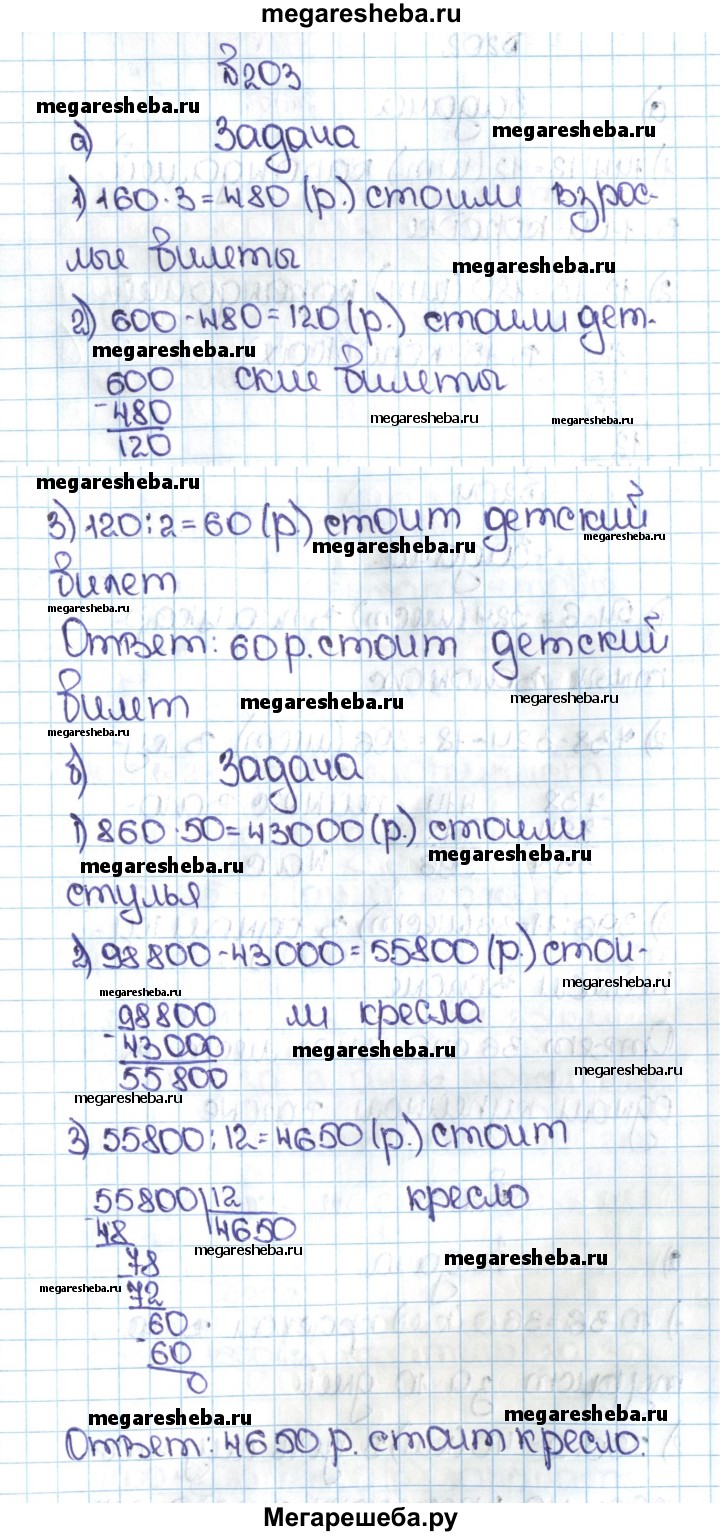 megaresheba.ru
№203
megaresheba.ru
а) Задача
megaresheba.ru
1) 160·3=480 (р.) стоили взрос-
лые билеты
megaresheba.ru
2) 600-480=120 (р.) стоили дет-
megaresheba.ru
600 ские билеты
-480
megaresheba.ru megaresheba.ru
120
megaresheba.ru
3) 120:2=60 (р.) стоит детский
megaresheba.ru megaresheba.ru
билет
megaresheba.ru
Ответ: 60 р. стоит детский
билет megaresheba.ru megaresheba.ru
megaresheba.ru
б) Задача
1) 860·50=43000 (р.) стоили
megaresheba.ru megaresheba.ru
стулья
2) 98800-43000=55800 (р.) стои-
megaresheba.ru megaresheba.ru
98800 ли кресла
-43000 megaresheba.ru
55800 megaresheba.ru
megaresheba.ru
3) 55800:12=4650 (р.) стоит
55800 12 кресло
-48 4650
megaresheba.ru megaresheba.ru
78
megaresheba.ru
-72
60
-60
0
megaresheba.ru megaresheba.ru
Ответ: 4650 р. стоит кресло.
Мегарешеба.ру